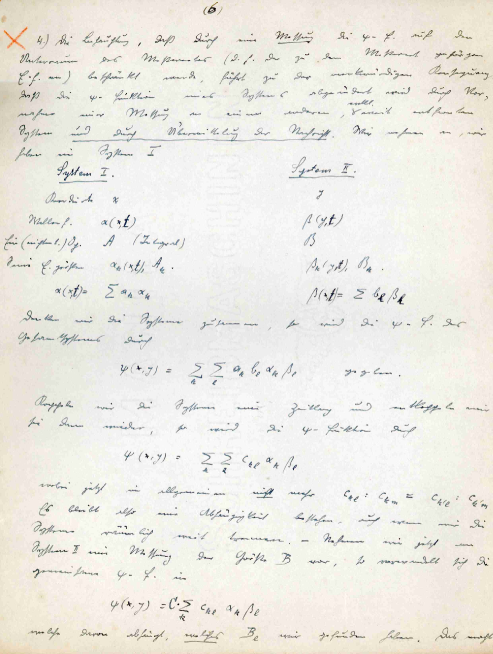 (6)
4.) Die Behauptung, daß durch eine Messung die ψ-F. auf den
Unterraum des Messwertes (d.h. der zu dem Messwert gehörigen
E.F.en) beschränkt werde, führt zu der merkwürdigen Konsequenz,
daß die ψ-Funktion eines Systems abgeändert wird durch Vor-
nahme einer Messung an einem anderen, weit entfernten
System und durch Übermittelung der Nachricht. Wir nehmen an, wir
haben ein System I
System I. System II.
Koordinate x y
Wellenf. α(x,t) β(y,t)
Ein Op. A (Integral) B
Seine E. größen αₖ(x,t), Aₖ. βₖ(y,t), Bₖ.
α(xt) = ∑ aₖ αₖ β(xt) = ∑ bₗ βₗ
Denken wir die Systeme zusammen, so wird die ψ-F. des
Gesamtsystems durch
ψ(x,y) = ∑ₖ ∑ₗ aₖ bₗ αₖ βₗ gegeben.
Koppeln wir die Systeme eine Zeitlang und entkoppeln wir
sie dann wieder, so wird die ψ-Funktion durch
ψ(x,y) = ∑ₖ ∑ₗ cₖₗ αₖ βₗ
wobei jetzt im allgemeinen nicht mehr cₖₗ : cₖₘ = cₖ'ₗ : cₖ'ₘ
Es bleibt also eine Abhängigkeit bestehen, auch wenn wir die
Systeme räumlich weit trennen. – Nehmen wir jetzt am
System II eine Messung der Größe B vor, so verwandelt sich die
gemeinsame ψ-F. in
ψ(x,y) = C·∑ₖ cₖₗ αₖ βₗ
welche davon abhängt, welches Bₗ wir gefunden haben. Das macht